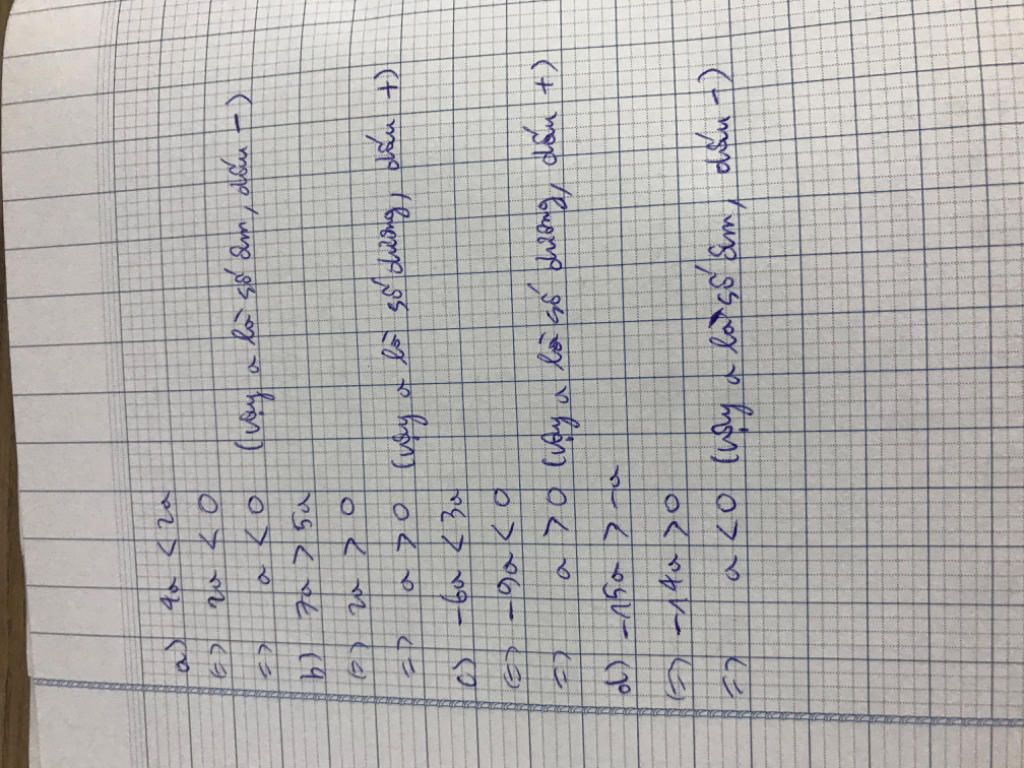 a) 4a < 2a
(=) 2a < 0
=) a < 0 (vậy a là số âm, dấu -)
b) 7a > 5a
(=) 2a > 0
=) a > 0 (vậy a là số dương, dấu +)
c) -6a < 3a
(=) -9a < 0
=) a > 0 (vậy a là số dương, dấu +)
d) -15a > -a
(=) -14a > 0
=) a < 0 (vậy a là số âm, dấu -)